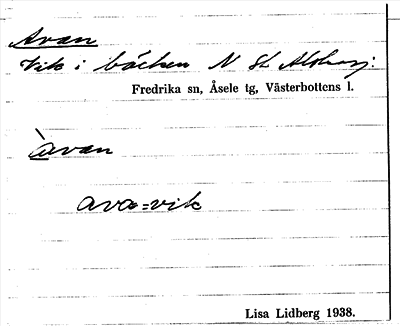 Avan
Vik i bäcken N St.
Fredrika sn, Åsele tg, Västerbottens l.
àvan
ava = vik
Lisa Lidberg 1938.